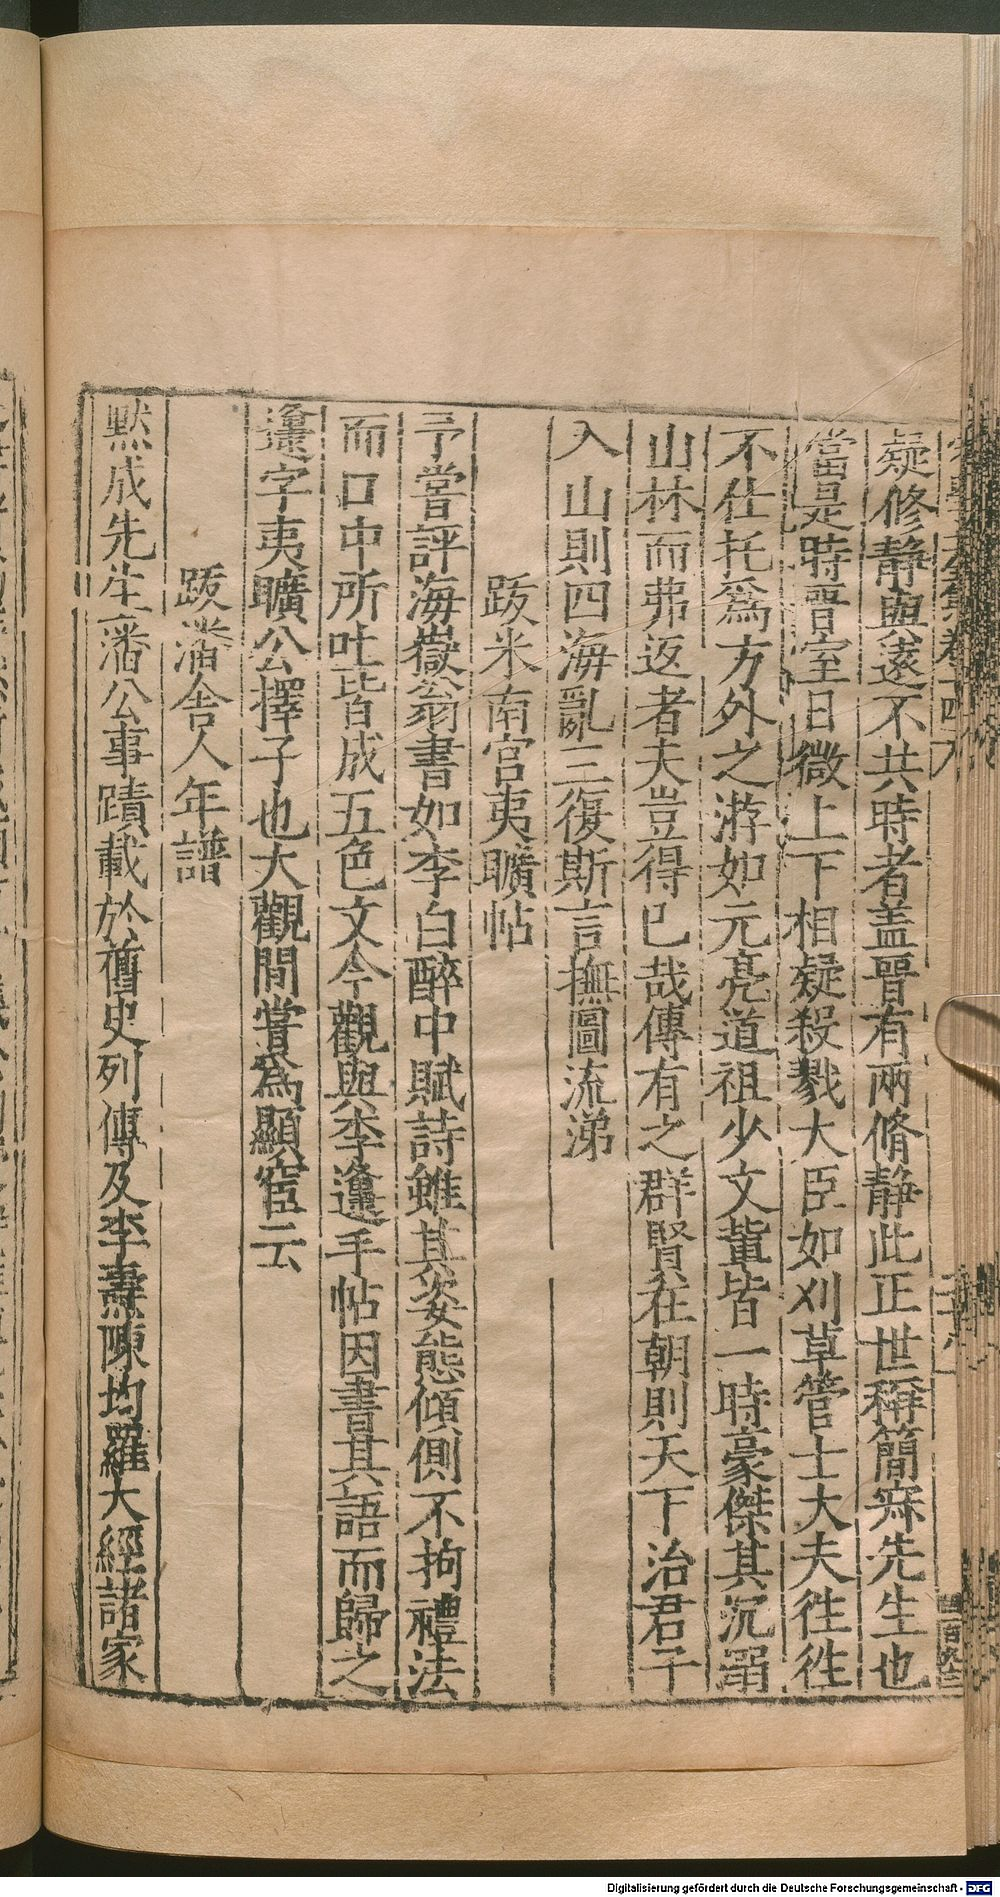 疑修静與遠不共時者盖晋有兩脩静此正世稱簡寂先生也
當是時晋室日微上下相疑殺戮大臣如刈草管士大夫徃徃
不仕托爲方外之游如元亮道祖少文軰皆一時豪傑其沉溺
山林而弗返者夫豈得已哉傳有之群賢在朝則天下治君子
入山則四海亂三復斯言撫圖流涕
跋米南宫夷曠帖
予嘗評海嶽翁書如李白醉中賦詩雖其姿態傾側不拘禮法
而口中所吐皆成五色文今觀與李邍手帖因書其語而歸之
邍字夷曠公擇子也大觀間嘗爲顯官云
跋潘舎人年譜
黙成先生潘公事蹟載於舊史列傳及李燾陳均羅大經諸家
Digitalisierung gefördert durch die Deutsche Forschungsgemeinschaft - DFG